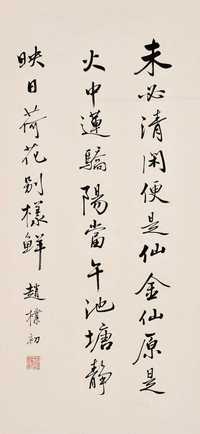 未必清闲便是仙金仙原是
火中莲驕陽當午池塘静
映日荷花别樣鮮 趙樸初